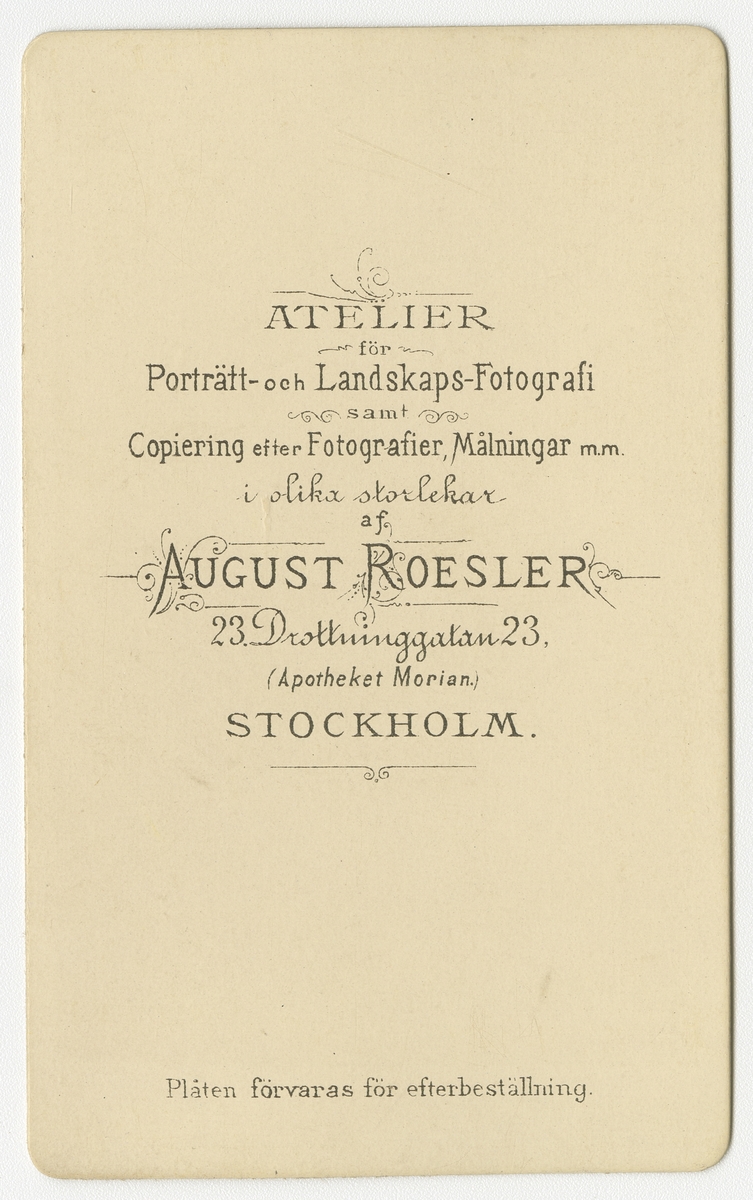 ATELIER
för
Porträtt- och Landskaps-Fotografi
samt
Copiering efter Fotografier, Målningar m.m.
i olika storlekar
af
AUGUST ROESLER
23. Drottninggatan 23,
(Apotheket Morian.)
STOCKHOLM.
Plåten förvaras för efterbeställning.